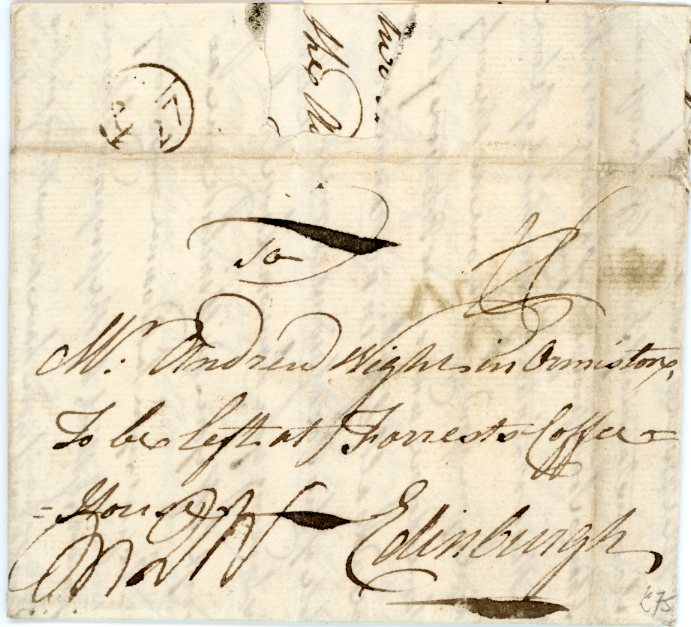 To
Mr. Andrew Wight in Ormiston,
To be left at Forrests Coffee=
=House
Edinburgh
£75